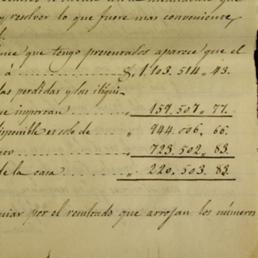 y resolver lo que fuere mas conveniente,
que tengo presentados aparece que el
á ........ $ 1"103.514,, 43.
las perdidas y los iliqui-
que importan ........ " 159.507,, 77.
disponible es solo de ........ " 944.006,, 66.
" 723.502,, 83.
de la casa ........ " 220.503,, 83.
por el resultado que arrojan los números